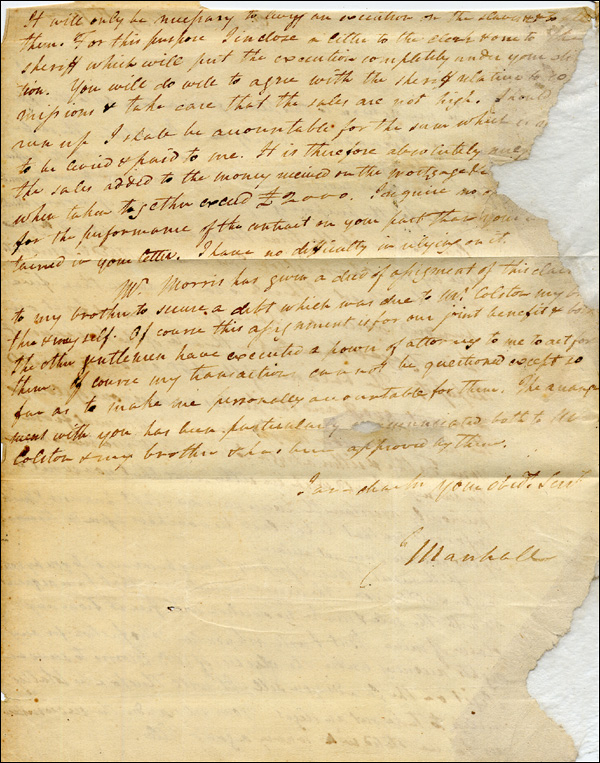 It will only be necessary to levy an execution on the slaves & to
them. For this purpose I inclose a letter to the clerk & one to the
sheriff which will put the execution completely under your di
tion. You will do well to agree with the sheriff relative to co
missions & take care that the sales are not high. Should
run up I shall be accountable for the sum which
to be levied & paid to me. It is therefore absolutely nece
the sales added to the money received on the mortgage
when taken together exceed £2000. I require no
for the performance of the contract on your part than your
tained in your letter. I have no difficulty in relying on it.
Mr. Morris has given a deed of assignment of this claim
to my brother to secure a debt which was due to Mr. Colston my b
ther & myself. Of course this assignment is for our joint benefit &
The other gentlemen have executed a power of attorney to me to act for
them. Of course my transaction cannot be questioned except so
far as to make me personally accountable for them. The arrange
ment with you has been particularly communicated both to Mr.
Colston & my brother & has been approved by them.
I am dear Sir your obedt. Servt.
J Marshall